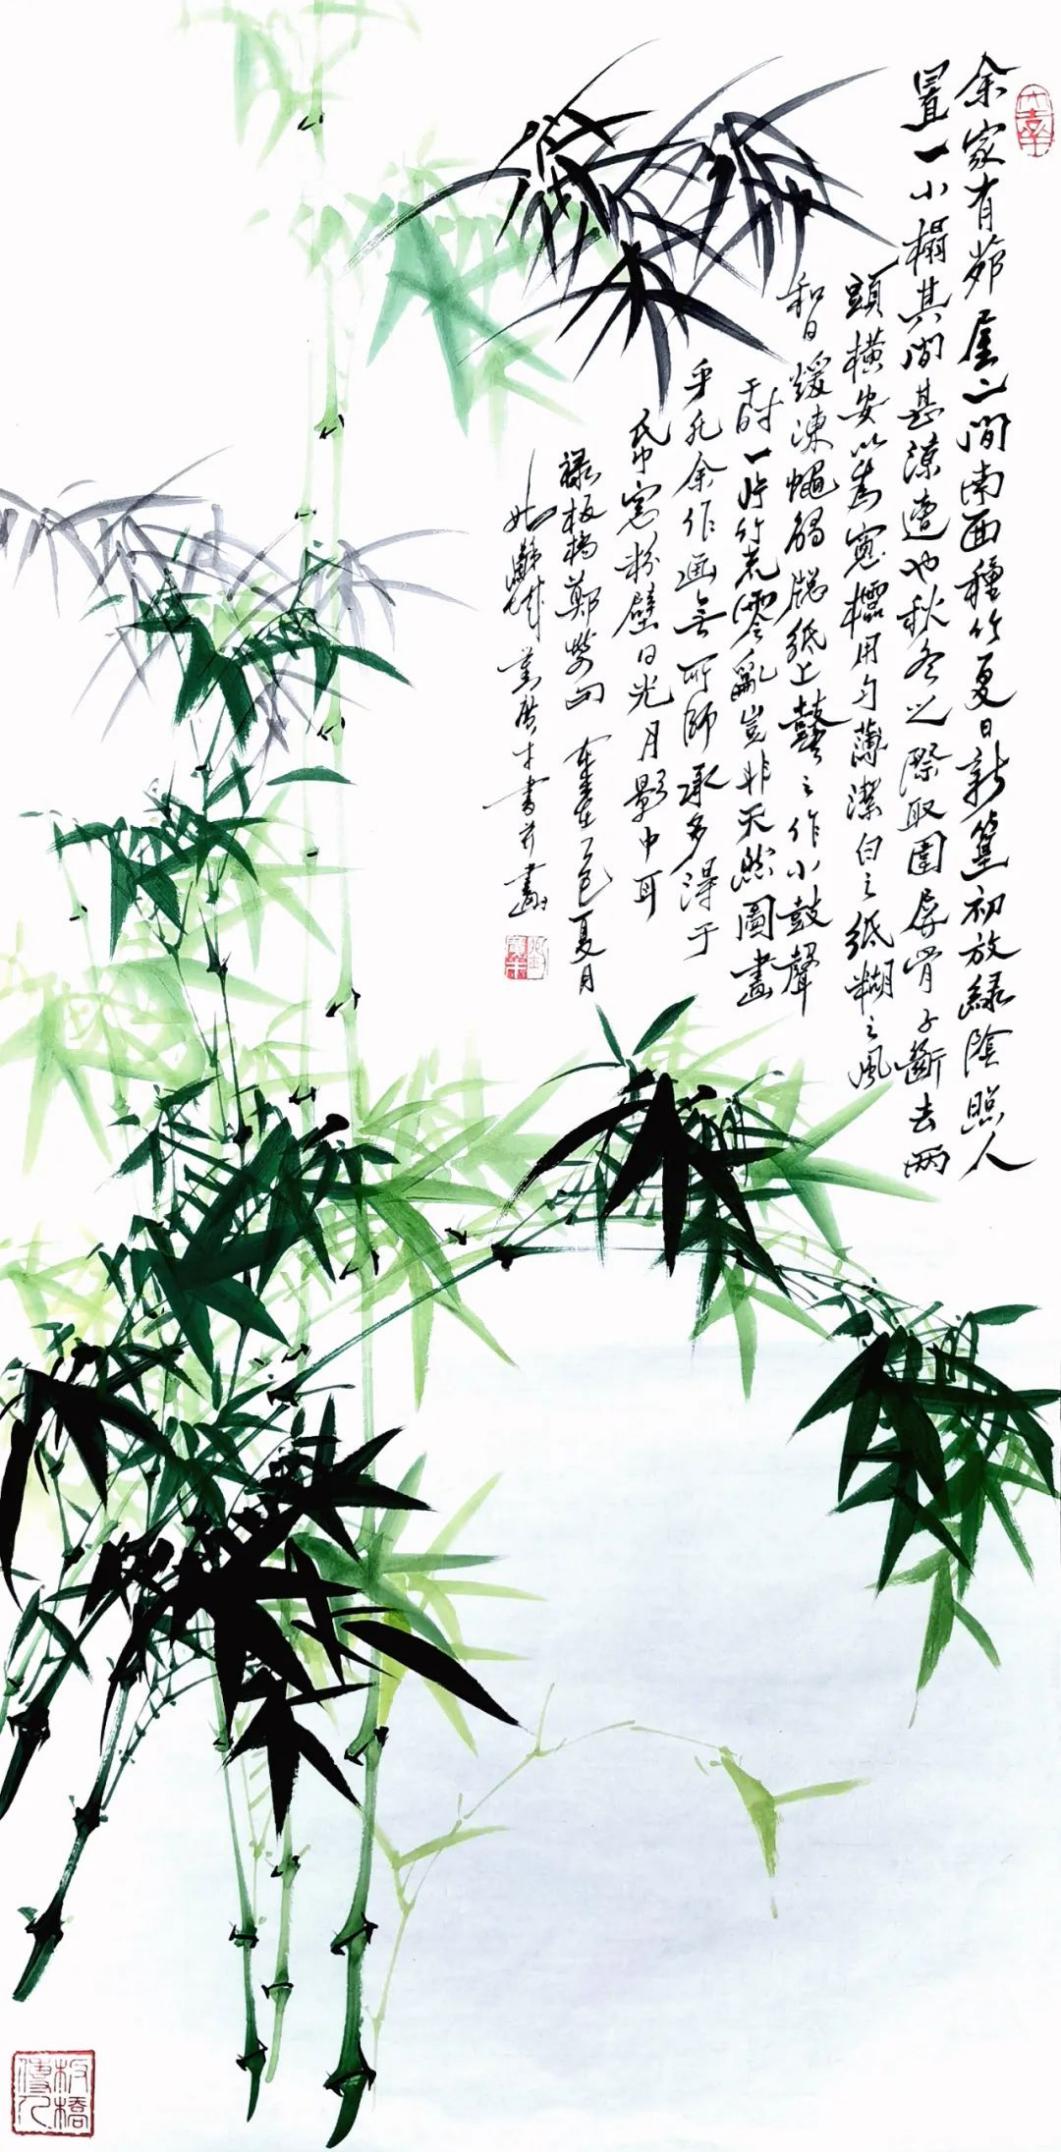 余家有茆屋二間南面種竹夏日新篁初放緑陰照人
置一小榻其間甚涼適也秋冬之際取圍屏骨子斷去兩
頭橫安以為窓櫺用勻薄潔白之紙糊之風
和日煖凍蠅觸牕紙上鼕々作小鼓聲
于時一片竹影零亂豈非天然圖畫
乎凡余作画無所師承多得于
紙窓粉壁日光月影中耳
録板橋鄭燮句 夏月
書并畫
板橋傳人